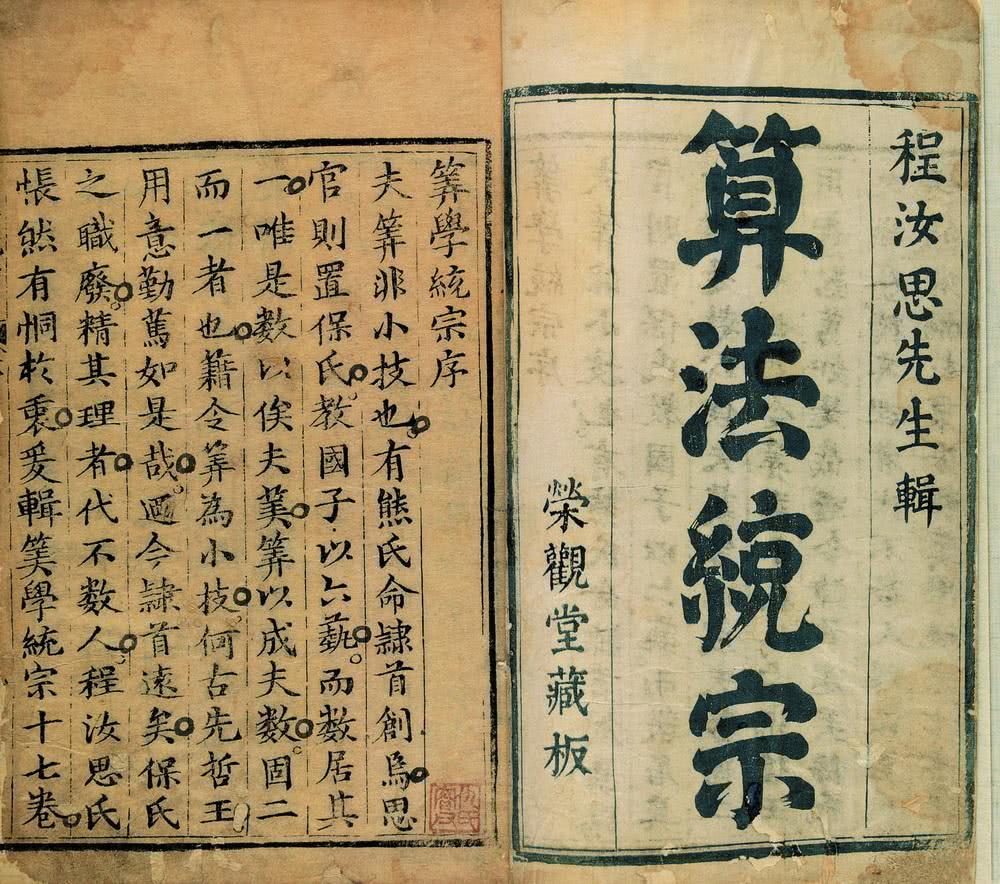 程汝思先生輯
算法統宗
榮觀堂藏板
筭學統宗序
夫筭非小技也有熊氏命隸首創爲思
官則置保氏教國子以六藝而數居其
一唯是數以俟夫筭筭以成夫數固二
而一者也籍令筭為小技何古先哲王
用意勤篤如是哉迺今隸首遠矣保氏
之職廢精其理者代不數人程汝思氏
悵然有恫於衷爰輯筭學統宗十七卷